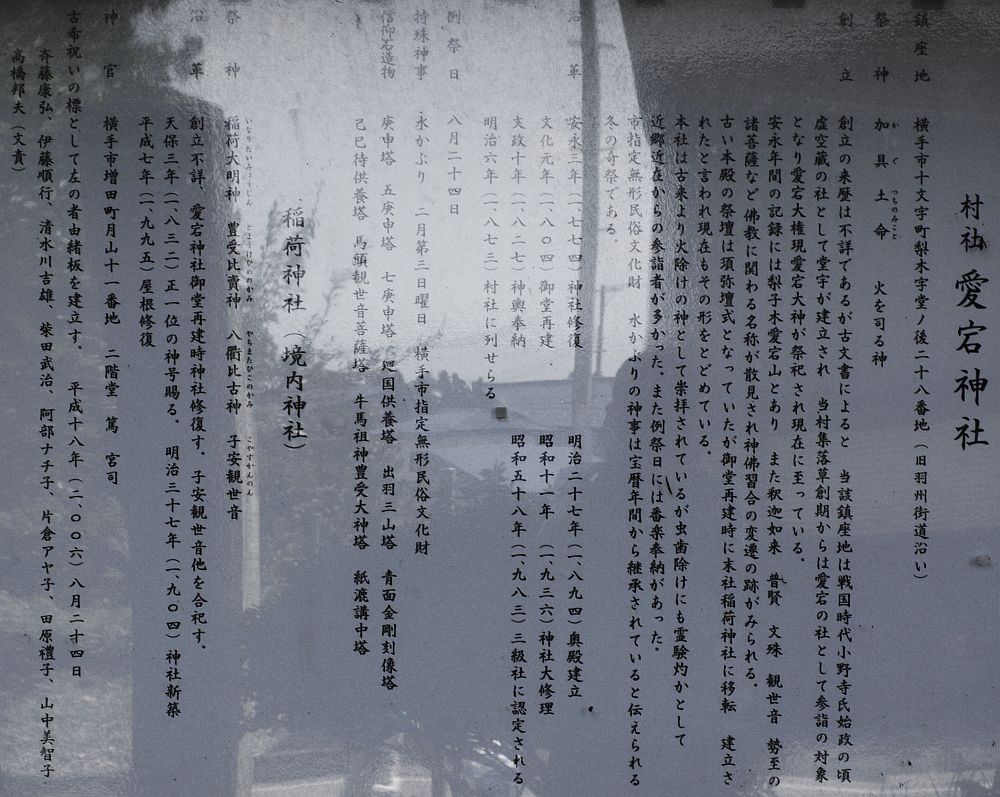 村社 愛宕神社
鎮座地 横手市十文字町梨木字堂ノ後二十八番地(旧羽州街道沿い)
祭神 加具土命 火を司る神
か ぐ つちのみこと
創立 創立の来歴は不詳であるが古文書によると 当該鎮座地は戦国時代小野寺氏始政の頃
虚空蔵の社として堂宇が建立され 当村集落草創期からは愛宕の社として参詣の対象
となり愛宕大権現愛宕大神が祭祀され現在に至っている。
安永年間の記録には梨子木愛宕山とあり また釈迦如来 普賢 文殊 観世音 勢至の
諸菩薩など佛教に関わる名称が散見され神佛習合の変遷の跡がみられる。
古い本殿の祭壇は須弥壇式となっていたが御堂再建時に末社稲荷神社に移転 建立さ
れたと言われ現在もその形をとどめている。
本社は古来より火除けの神として崇拝されているが虫歯除けにも霊験灼かとして
近郷近在からの参詣者が多かった。また例祭日には番楽奉納があった。
市指定無形民俗文化財 水かぶりの神事は宝暦年間から継承されていると伝えられる
冬の奇祭である。
沿革 安永三年(一、七七四)神社修復 明治二十七年(一、八九四)奥殿建立
文化元年(一、八〇四)御堂再建 昭和十一年(一、九三六)神社大修理
文政十年(一、八二七)神輿奉納 昭和五十八年(一、九八三)三級社に認定される
明治六年(一、八七三)村社に列せらる
例祭日 八月二十四日
特殊神事 水かぶり 二月第三日曜日 横手市指定無形民俗文化財
信仰石造物 庚申塔 五庚申塔 七庚申塔 廻国供養塔 出羽三山塔 青面金剛刻像塔
己巳待供養塔 馬頭観世音菩薩塔 牛馬祖神豊受大神塔 紙漉講中塔
稲荷神社(境内神社)
いなりだいみょうじん とようけひめのかみ やちまたひこのかみ こやすかんのん
祭神 稲荷大明神 豊受比賣神 八衢比古神 子安観世音
沿革 創立不詳、愛宕神社御堂再建時神社修復す。子安観世音他を合祀す。
天保三年(一、八三二)正一位の神号賜る。 明治三十七年(一、九〇四)神社新築
平成七年(一、九九五)屋根修復
神官 横手市増田町月山十一番地 二階堂 篤 宮司
古希祝いの標として左の者由緒板を建立す。 平成十八年(二、〇〇六)八月二十四日
斉藤康弘、伊藤順行、清水川吉雄、柴田武治、阿部ナチ子、片倉アヤ子、田原禮子、山中美智子
高橋邦夫(文責)